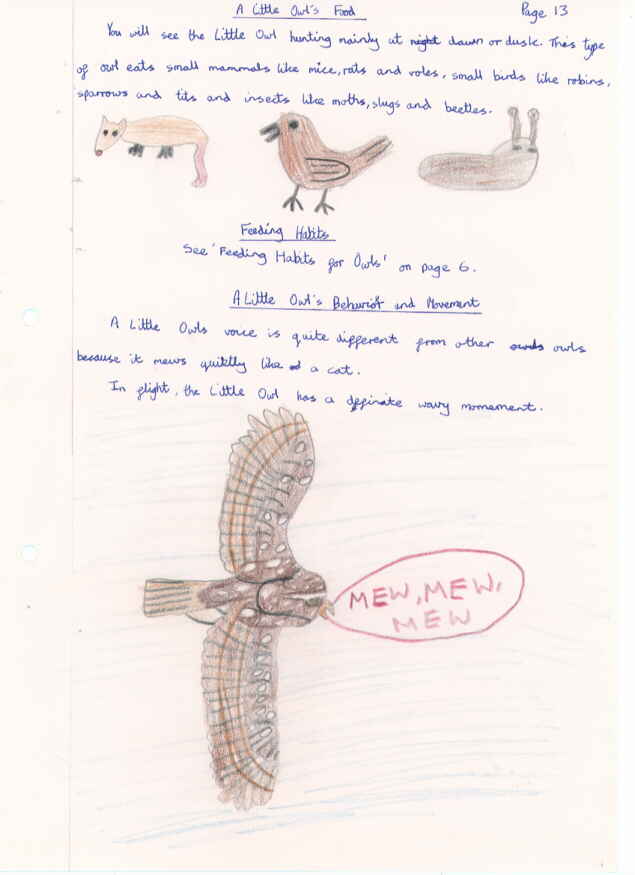 A Little Owl's Food
Page 13
You will see the Little Owl hunting mainly at night dawn or dusk. This type
of owl eats small mammals like mice, rats and voles, small birds like robins,
sparrows and tits and insects like moths, slugs and beetles.
Feeding Habits
See 'Feeding Habits for Owls' on page 6.
A Little Owl's Behaviour and Movement
A Little Owls voice is quite different from other owls
because it mews quietly like a cat.
In flight, the Little Owl has a deffinate wavy momement.
MEW, MEW,
MEW